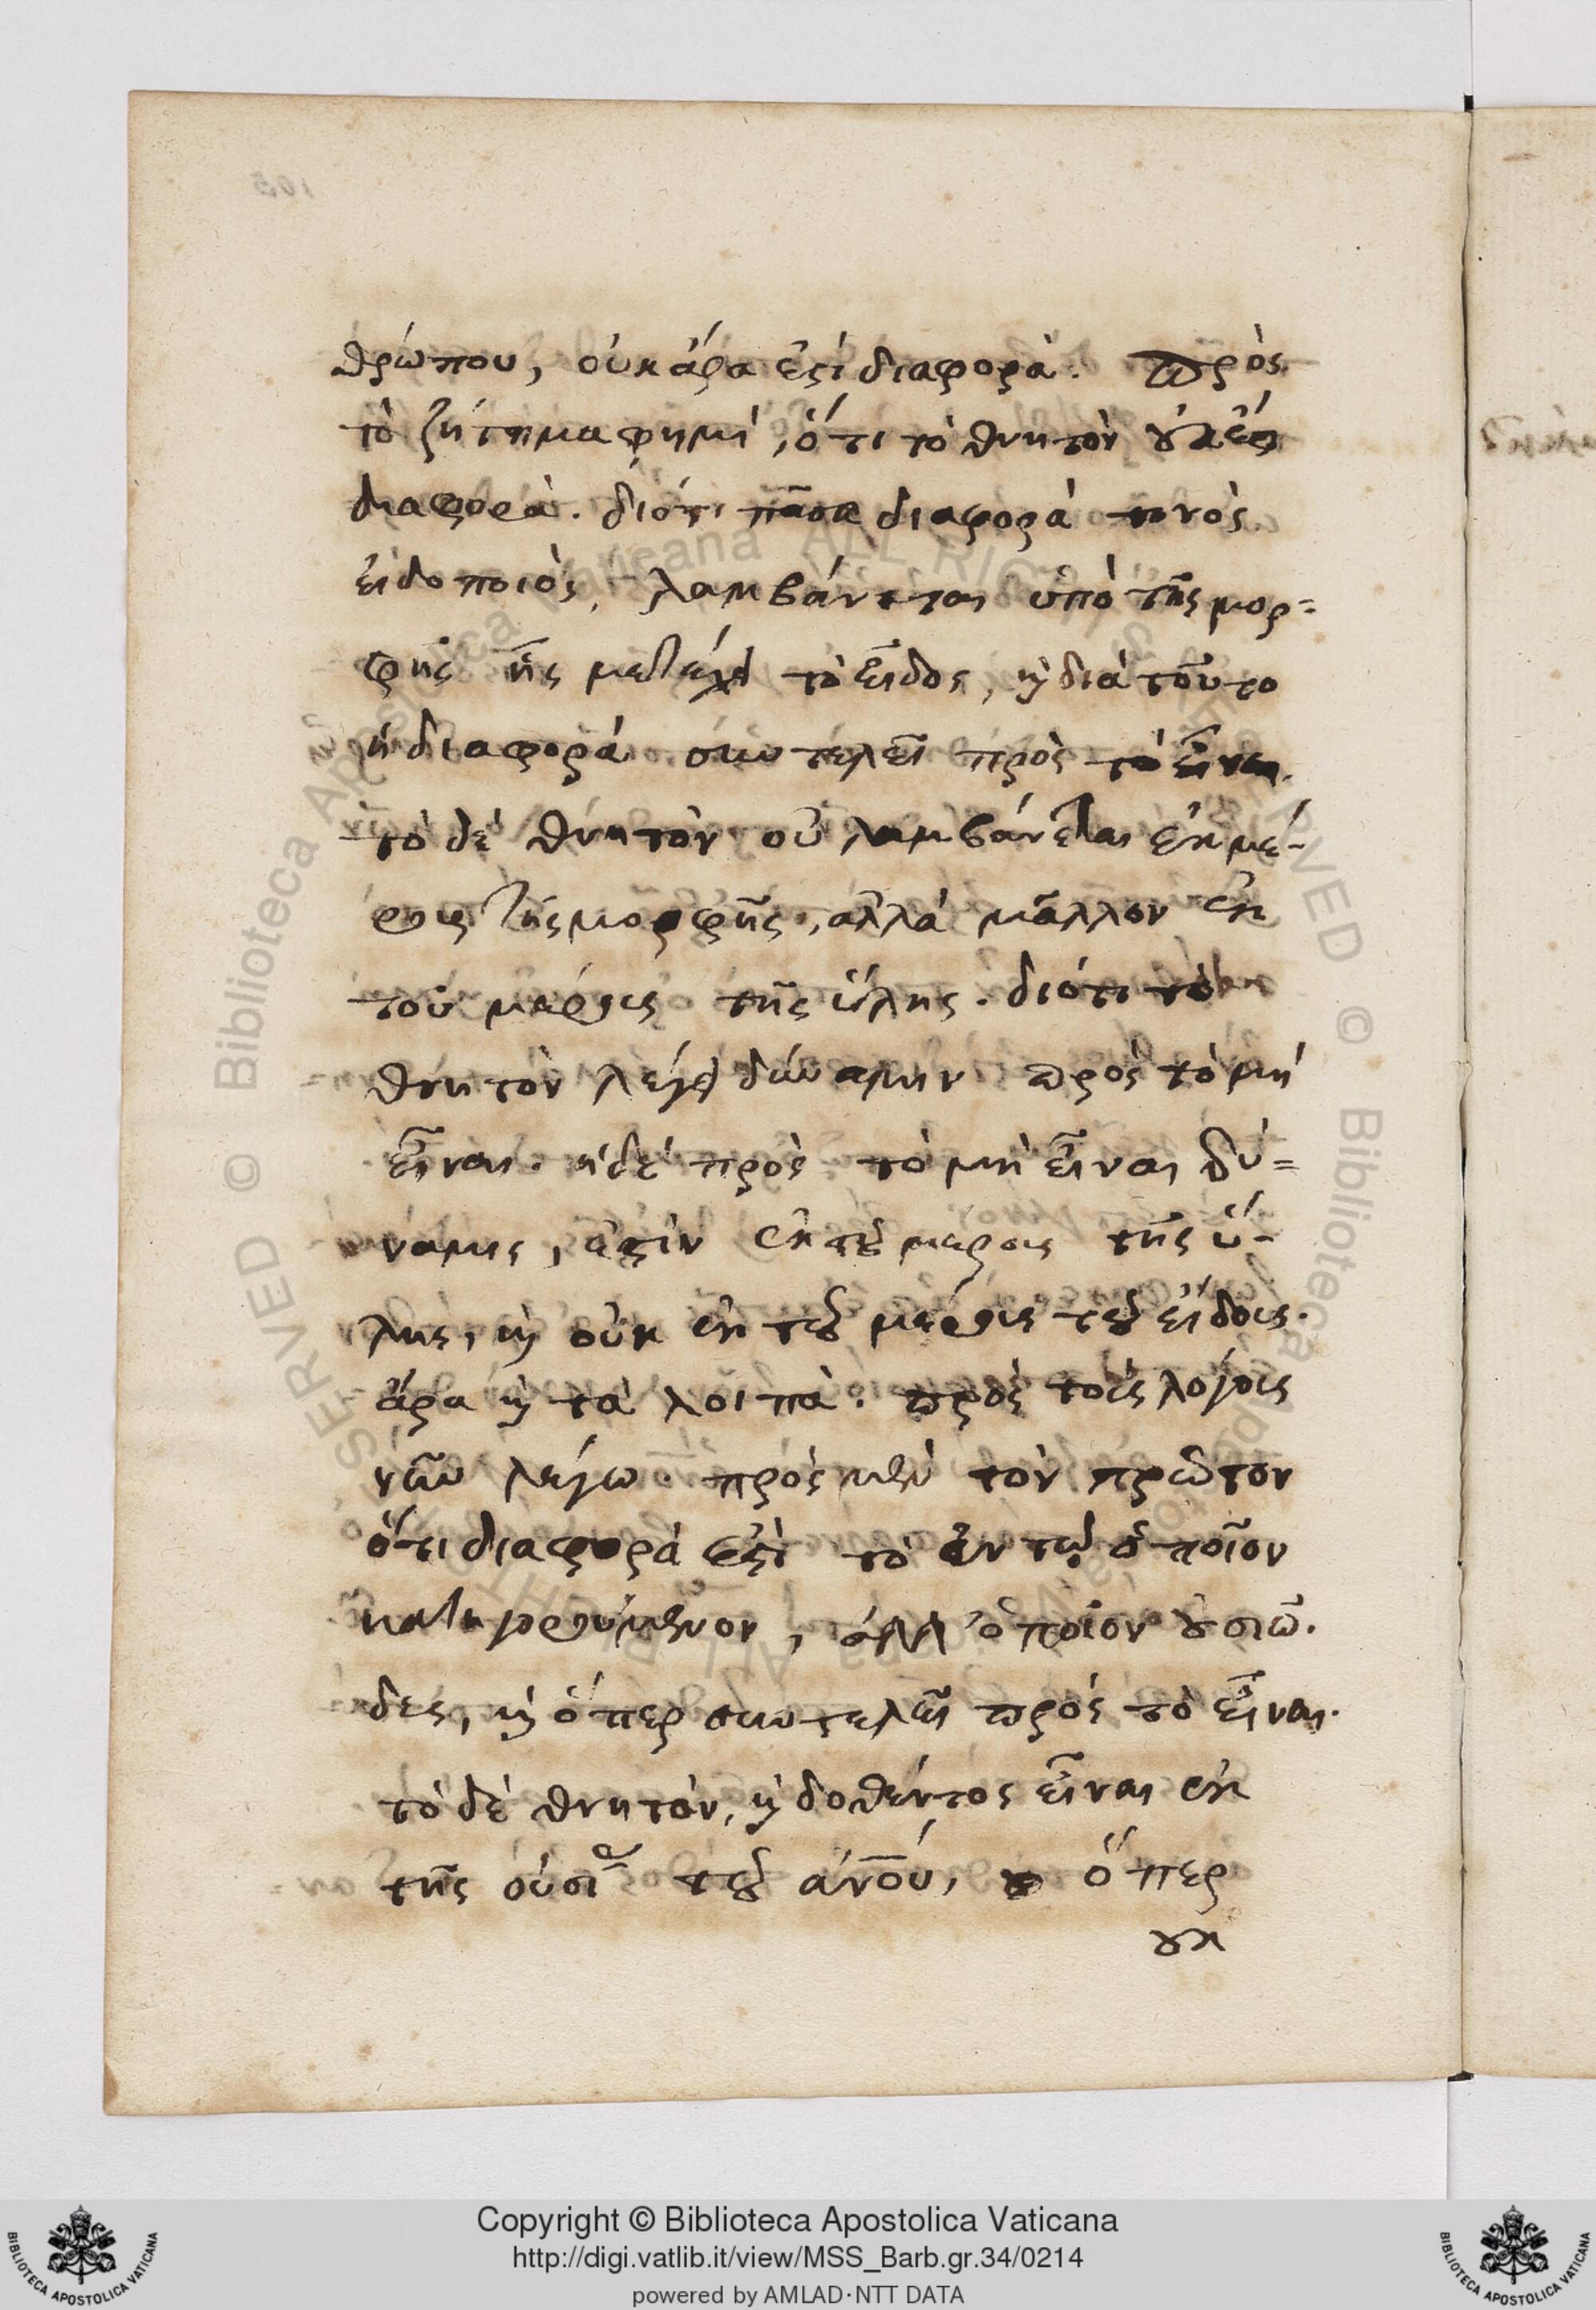 θρώπου, οὐκ ἄρα ἐστὶ διαφορά. πρὸς
τὸ ζήτημα φημὶ, ὅτι τὸ θνητὸν οὐκ ἔστι
διαφορὰ. διότι πᾶσα διαφορὰ τινὸς
εἰδοποιὸς, λαμβάνεται ὑπὸ τῆς μορ=
φῆς ἧς μετέχει τὸ εἶδος, καὶ διὰ τοῦτο
ἡ διαφορὰ συντελεῖ πρὸς τὸ εἶναι.
τὸ δὲ θνητὸν οὐ λαμβάνεται ἐκ μέ-
ρους τῆς μορφῆς, ἀλλὰ μᾶλλον ἐκ
τοῦ μέρους τῆς ὕλης. διότι τὸ
θνητὸν λέγει δύναμιν πρὸς τὸ μὴ
εἶναι. ἡ δὲ πρὸς τὸ μὴ εἶναι δύ=
ναμις, ἐστὶν ἐκ τοῦ μέρους τῆς ὕ-
λης, καὶ οὐκ ἐκ τοῦ μέρους τοῦ εἴδους.
ἄρα καὶ τὰ λοιπὰ. πρὸς τοὺς λόγους
νῦν λέγω. πρὸς μὲν τὸν πρῶτον
ὅτι διαφορὰ ἐστὶ τὸ ἐν τῷ ὁποῖον
κατηγορούμενον, ἀλλ' ὁποῖον οὐσιῶ.
δες, καὶ ὅπερ συντελεῖ πρὸς τὸ εἶναι.
τὸ δὲ θνητὸν, καὶ δοθέντος εἶναι ἐκ
τῆς οὐσίας τοῦ ἀνου, ὅπερ
οὐκ
Copyright © Biblioteca Apostolica Vaticana
http://digi.vatlib.it/view/MSS_Barb.gr.34/0214
powered by AMLAD·NTT DATA